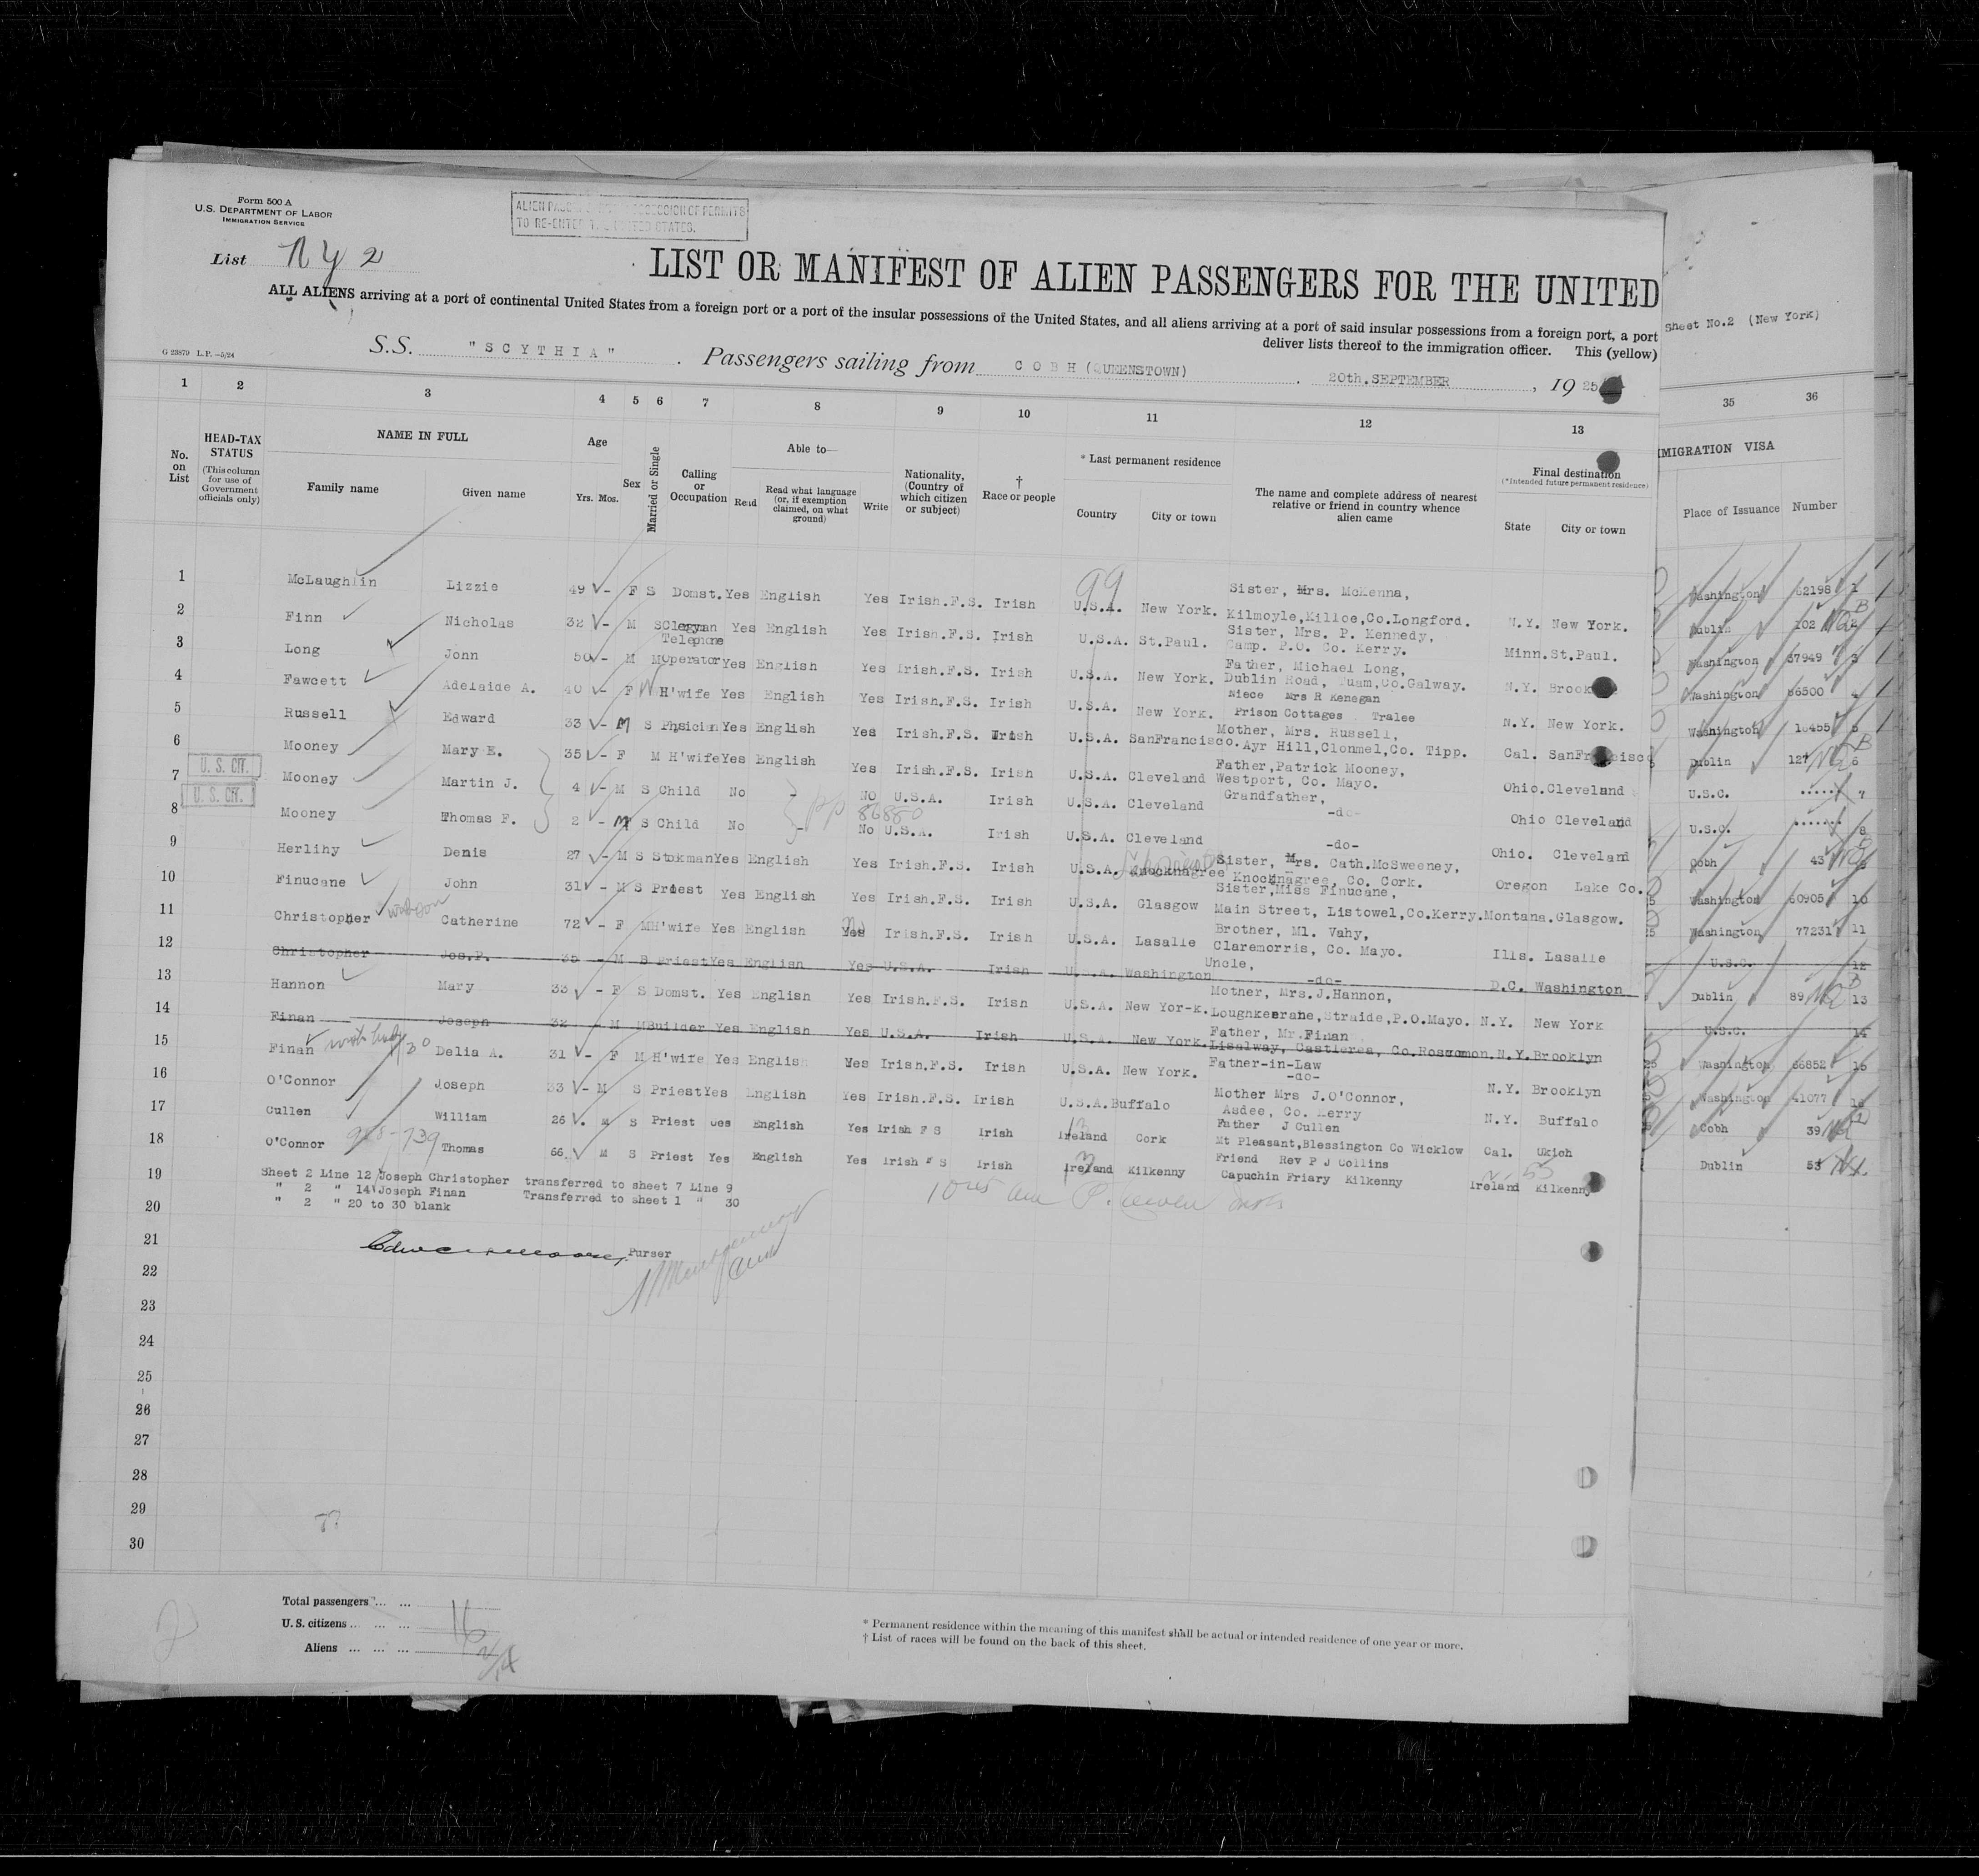 Form 500 A
U.S. DEPARTMENT OF LABOR
IMMIGRATION SERVICE
ALIEN PASSENGERS IN POSSESSION OF PERMITS
TO RE-ENTER THE UNITED STATES.
List NY 2
LIST OR MANIFEST OF ALIEN PASSENGERS FOR THE UNITED
ALL ALIENS arriving at a port of continental United States from a foreign port or a port of the insular possessions of the United States, and all aliens arriving at a port of said insular possessions from a foreign port, a port
deliver lists thereof to the immigration officer. This (yellow)
Sheet No.2 (New York)
G 23879 L.P.—5/24
S.S. "SCYTHIA" . Passengers sailing from COBH (QUEENSTOWN) . 20th.SEPTEMBER , 19 25
1 2 3 4 5 6 7 8 9 10 11 12 13 35 36
No. on List
HEAD-TAX STATUS
(This column for use of Government officials only)
NAME IN FULL
Family name Given name
Age
Yrs. Mos.
Sex
Married or Single
Calling or Occupation
Able to—
Read
Read what language (or, if exemption claimed, on what ground)
Write
Nationality, (Country of which citizen or subject)
† Race or people
* Last permanent residence
Country City or town
The name and complete address of nearest relative or friend in country whence alien came
Final destination
(*Intended future permanent residence)
State City or town
IMMIGRATION VISA
Place of Issuance Number
99
1 McLaughlin Lizzie 49 - F S Domst. Yes English Yes Irish.F.S. Irish U.S.A. New York. Sister, Mrs. McKenna, Kilmoyle,Killoe,Co.Longford. N.Y. New York. Washington 62198 1
2 Finn Nicholas 32 - M S Clergyman Yes English Yes Irish.F.S. Irish U.S.A. St.Paul. Sister, Mrs. P. Kennedy, Camp. P.O. Co. Kerry. Minn. St.Paul. Dublin 102 2
3 Long John 50 - M M Telephone Operator Yes English Yes Irish.F.S. Irish U.S.A. New York. Father, Michael Long, Dublin Road, Tuam,Co.Galway. N.Y. Washington 37949 3
4 Fawcett Adelaide A. 40 - F W H'wife Yes English Yes Irish.F.S. Irish U.S.A. New York. Niece Mrs R Kenegan Prison Cottages Tralee N.Y. New York. Washington 66500 4
5 Russell Edward 33 - M S Phsician Yes English Yes Irish.F.S. Irish U.S.A. SanFrancisco. Mother, Mrs. Russell, Ayr Hill,Clonmel,Co. Tipp. Cal. SanFrancisco Washington 5
6 Mooney Mary E. 35 - F M H'wife Yes English Yes Irish.F.S. Irish U.S.A. Cleveland Father,Patrick Mooney, Westport, Co. Mayo. Ohio. Cleveland Dublin 127 6
U.S. CIT.
7 Mooney Martin J. 4 - M S Child No - NO U.S.A. Irish U.S.A. Cleveland Grandfather, -do- Ohio Cleveland U.S.C. ...... 7
U.S. CIT.
8 Mooney Thomas F. 2 - M S Child No - No U.S.A. Irish U.S.A. Cleveland -do- Ohio. Cleveland U.S.C. ...... 8
pp 86880
9 Herlihy Denis 27 - M S Stokman Yes English Yes Irish.F.S. Irish U.S.A. Knocknagree Sister, Mrs. Cath.McSweeney, Knocknagree, Co. Cork. Oregon Lake Co. Cobh 43 9
10 Finucane John 31 - M S Priest Yes English Yes Irish.F.S. Irish U.S.A. Glasgow Sister,Miss Finucane, Main Street, Listowel,Co.Kerry. Montana. Glasgow. Washington 60905 10
11 Christopher Catherine 72 - F M H'wife Yes English Yes No Irish.F.S. Irish U.S.A. Lasalle Brother, Ml. Vahy, Claremorris, Co. Mayo. Ills. Lasalle Washington 77231 11
12 Christopher Jos.P. 35 - M S Priest Yes English Yes U.S.A. Irish U.S.A. Washington Uncle, -do- D.C. Washington U.S.C. 12
13 Hannon Mary 33 - F S Domst. Yes English Yes Irish.F.S. Irish U.S.A. New Yor-k. Mother, Mrs.J.Hannon, Straide,P.O.Mayo. N.Y. New York Dublin 89 13
14 Finan Joseph 32 - M M Builder Yes English Yes U.S.A. Irish U.S.A. New York. Father, Mr.Finan Lisalway, Castlerea, Co.Roscomon. N.Y. Brooklyn U.S.C. 14
15 Finan Delia A. 31 - F M H'wife Yes English Yes Irish.F.S. Irish U.S.A. New York. Father-in-Law -do- N.Y. Brooklyn Washington 66852 15
16 O'Connor Joseph 33 - M S Priest Yes English Yes Irish.F.S. Irish U.S.A. Buffalo Mother Mrs J.O'Connor, Asdee, Co. Kerry N.Y. Buffalo Washington 41077 16
17 Cullen William 26 . M S Priest Yes English Yes Irish F S Irish Ireland Cork Father J Cullen Mt Pleasant,Blessington Co Wicklow Cal. Ukich Cobh 39
18 O'Connor 928-739 Thomas 66. M S Priest Yes English Yes Irish F S Irish Ireland Kilkenny Friend Rev P J Collins Capuchin Friary Kilkenny Ireland Kilkenny Dublin 53
19 Sheet 2 Line 12 Joseph Christopher transferred to sheet 7 Line 9
" 2 " 14 Joseph Finan Transferred to sheet 1 " 30
20 " 2 " 20 to 30 blank
21 Purser
22
23
24
25
26
27
28
29
30
Total passengers ... ... 16
U.S. citizens ... ... ... 2
Aliens ... ... ... 14
* Permanent residence within the meaning of this manifest shall be actual or intended residence of one year or more.
† List of races will be found on the back of this sheet.
2